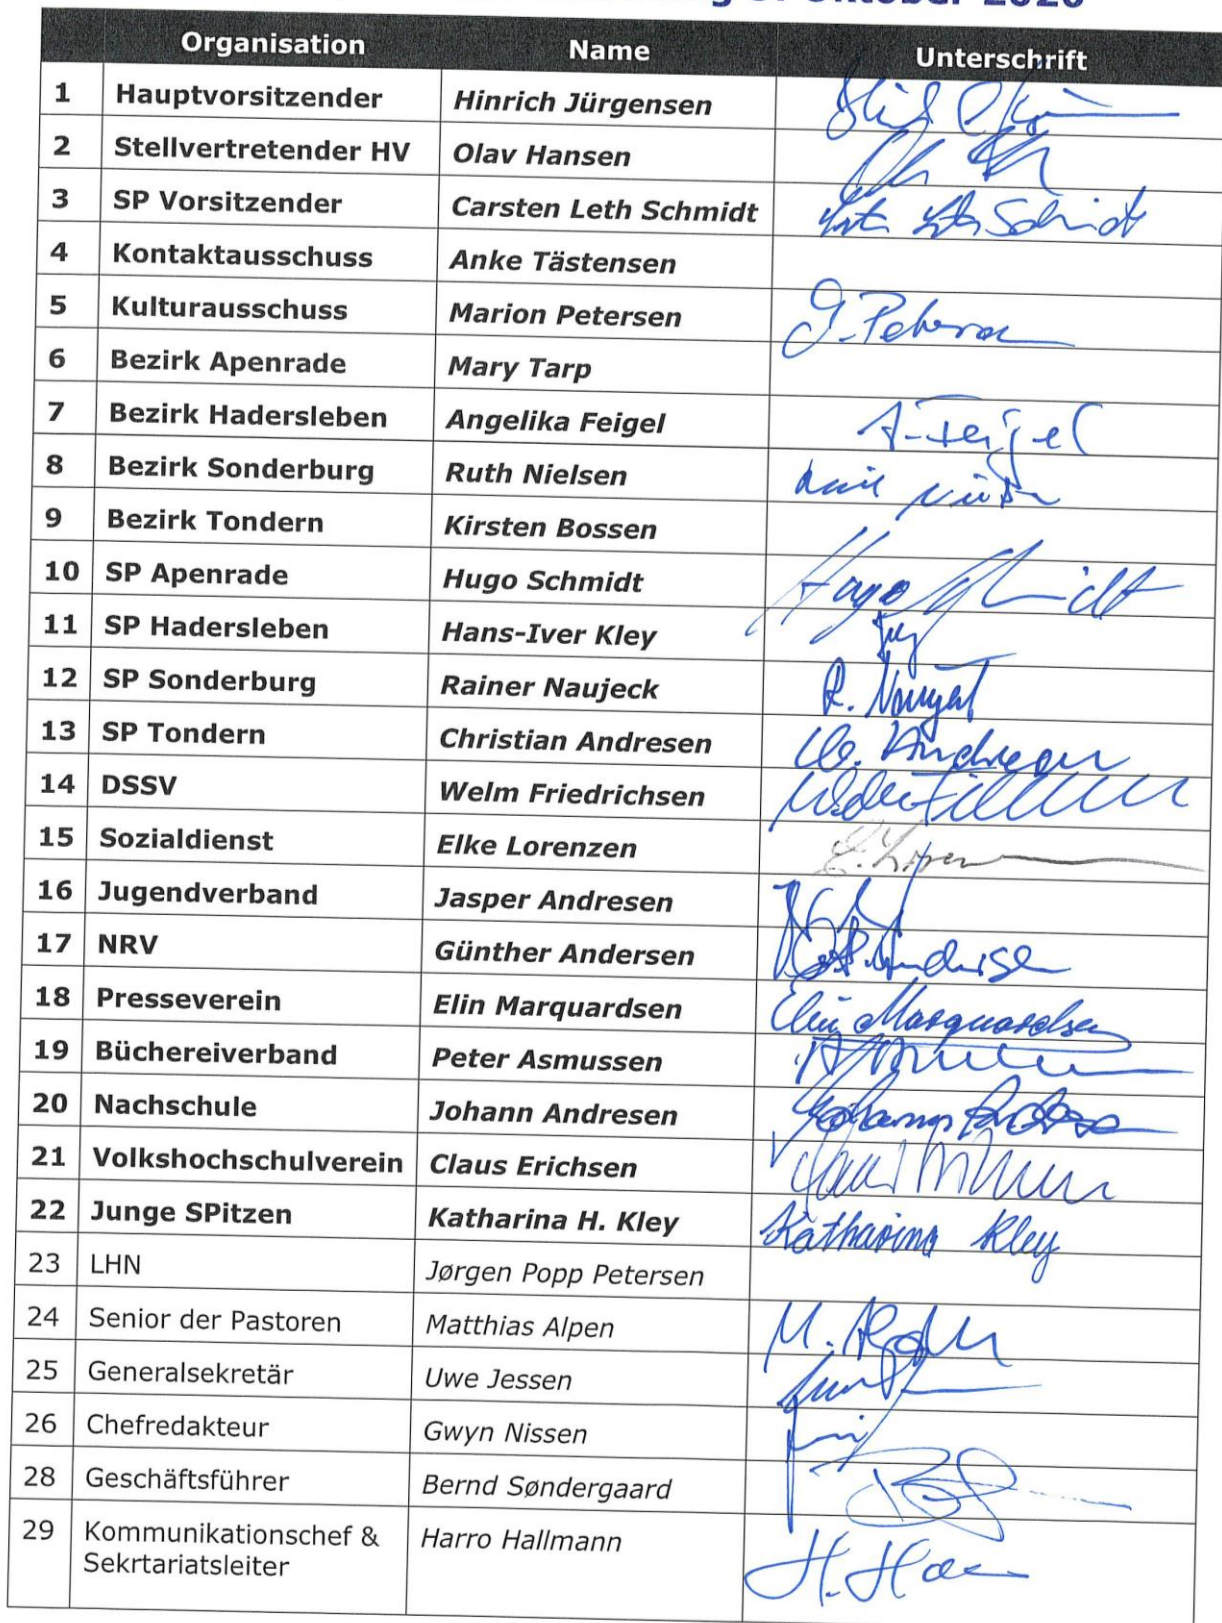 Oktober 2020
Organisation Name Unterschrift
1 Hauptvorsitzender Hinrich Jürgensen
2 Stellvertretender HV Olav Hansen
3 SP Vorsitzender Carsten Leth Schmidt Schmidt
4 Kontaktausschuss Anke Tästensen
5 Kulturausschuss Marion Petersen
6 Bezirk Apenrade Mary Tarp
7 Bezirk Hadersleben Angelika Feigel A-Feigel
8 Bezirk Sonderburg Ruth Nielsen
9 Bezirk Tondern Kirsten Bossen
10 SP Apenrade Hugo Schmidt Hugo Schmidt
11 SP Hadersleben Hans-Iver Kley
12 SP Sonderburg Rainer Naujeck
13 SP Tondern Christian Andresen Andresen
14 DSSV Welm Friedrichsen
15 Sozialdienst Elke Lorenzen
16 Jugendverband Jasper Andresen
17 NRV Günther Andersen
18 Presseverein Elin Marquardsen Elin Marquardsen
19 Büchereiverband Peter Asmussen
20 Nachschule Johann Andresen
21 Volkshochschulverein Claus Erichsen
22 Junge SPitzen Katharina H. Kley Katharina Kley
23 LHN Jørgen Popp Petersen
24 Senior der Pastoren Matthias Alpen
25 Generalsekretär Uwe Jessen
26 Chefredakteur Gwyn Nissen
28 Geschäftsführer Bernd Søndergaard
29 Kommunikationschef & Harro Hallmann
Sekrtariatsleiter